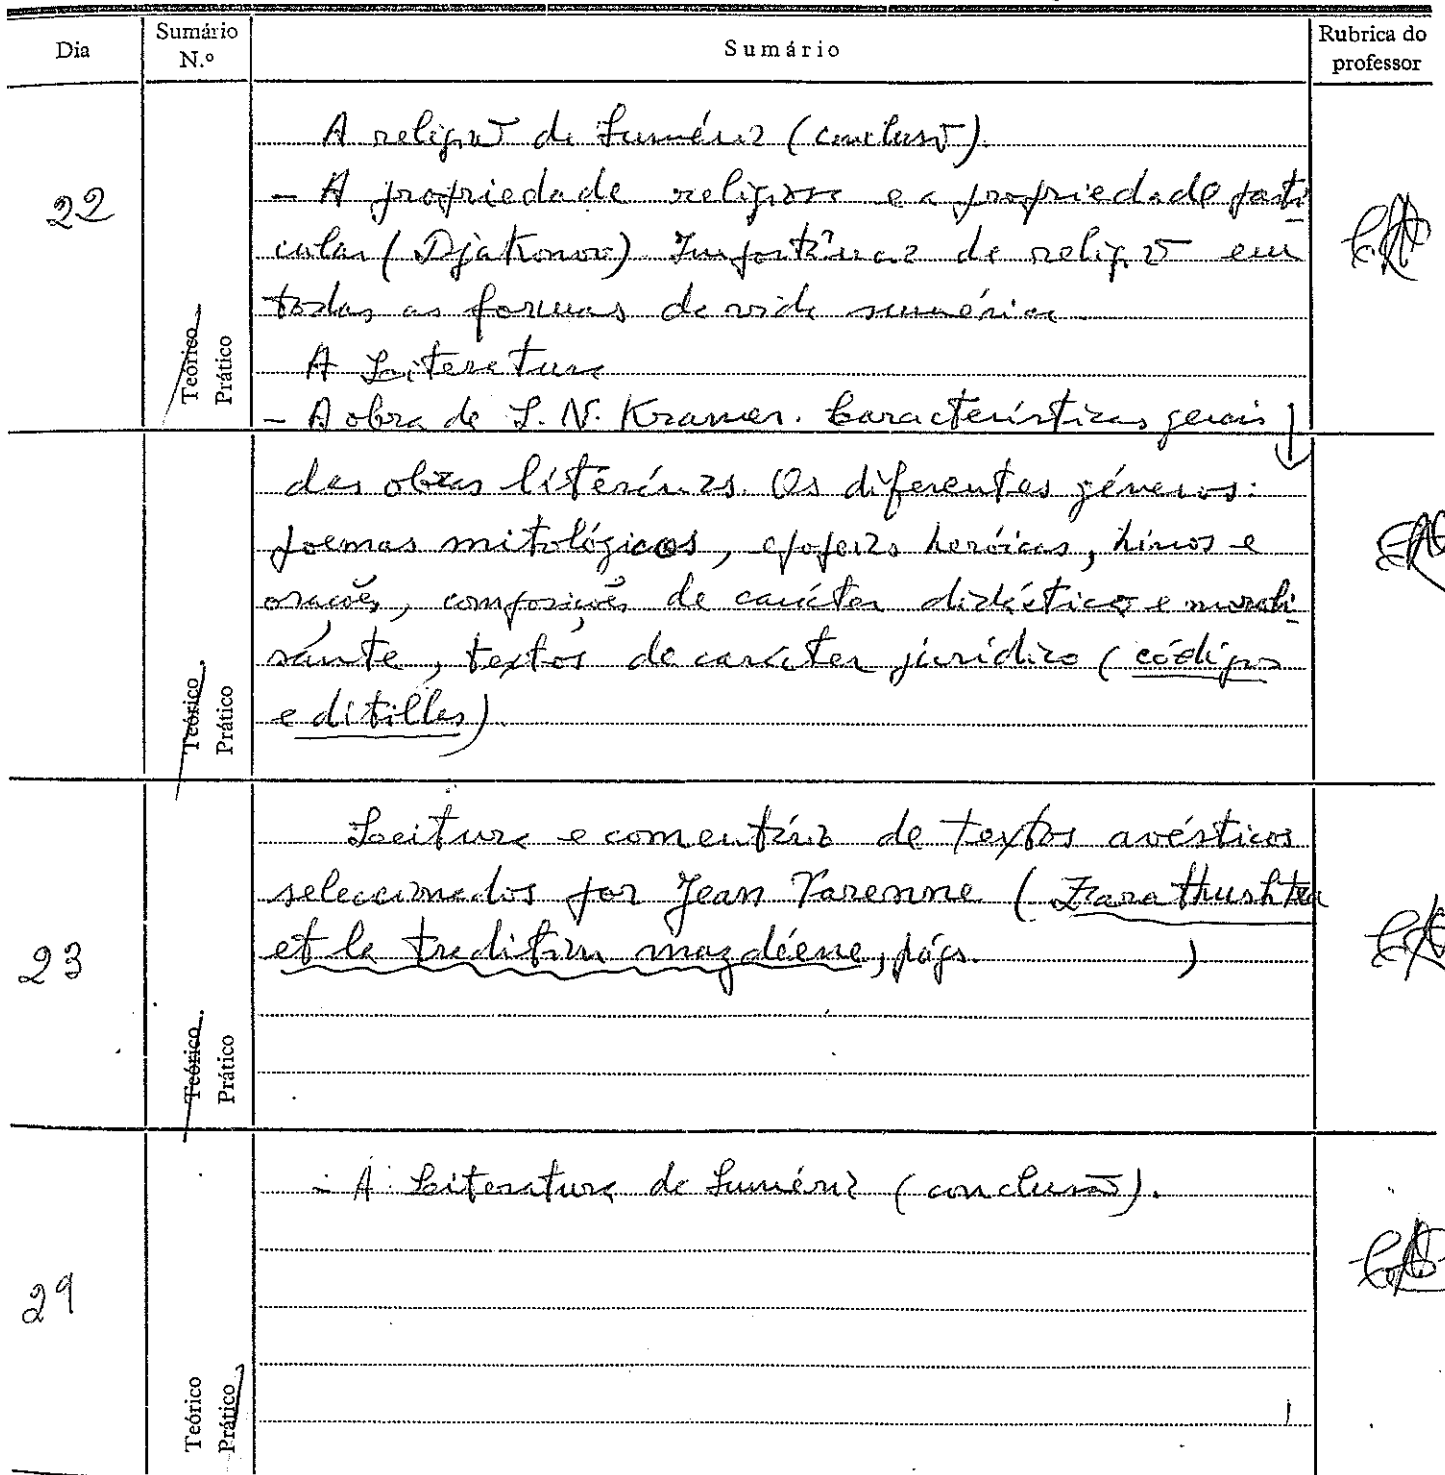 Dia
Sumário N.º
Sumário
Rubrica do professor
22
Teórico
Prático
A religião da Suméria (conclusão).
- A propriedade religiosa e a propriedade parti
cular (Djakonov) Importância da religião em
todas as formas da vida suméria.
A Literatura
- A obra de S. N. Kramer. Características gerais
Teórico
Prático
das obras literárias. Os diferentes géneros:
poemas mitológicos, epopeias heróicas, hinos e
orações, composições de carácter didáctico e morali
sante, textos de carácter jurídico (códigos
e ditillas).
23
Teórico
Prático
Leitura e comentário de textos avésticos
seleccionados por Jean Varenne (Zarathushtra
et la tradition mazdéene, págs. )
29
Teórico
Prático
- A Literatura da Suméria (conclusão).